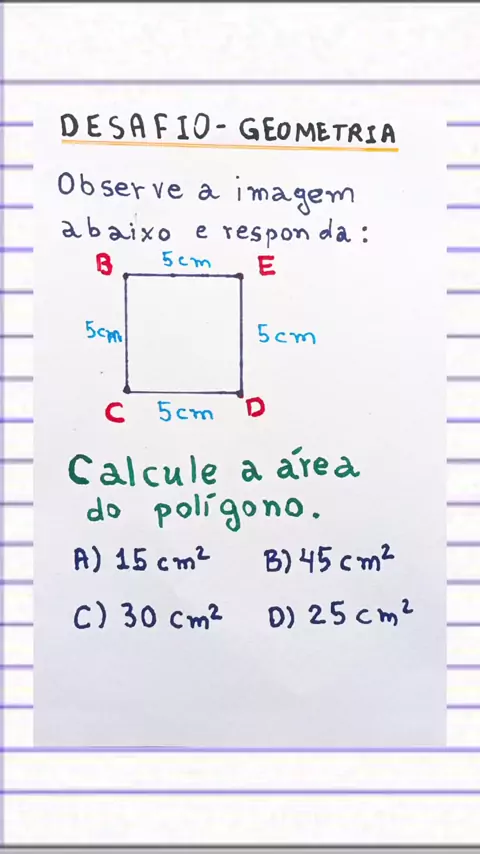 DESAFIO - GEOMETRIA
Observe a imagem
abaixo e responda:
B 5cm E
5cm 5cm
C 5cm D
Calcule a área
do polígono.
A) 15 cm² B) 45 cm²
C) 30 cm² D) 25 cm²